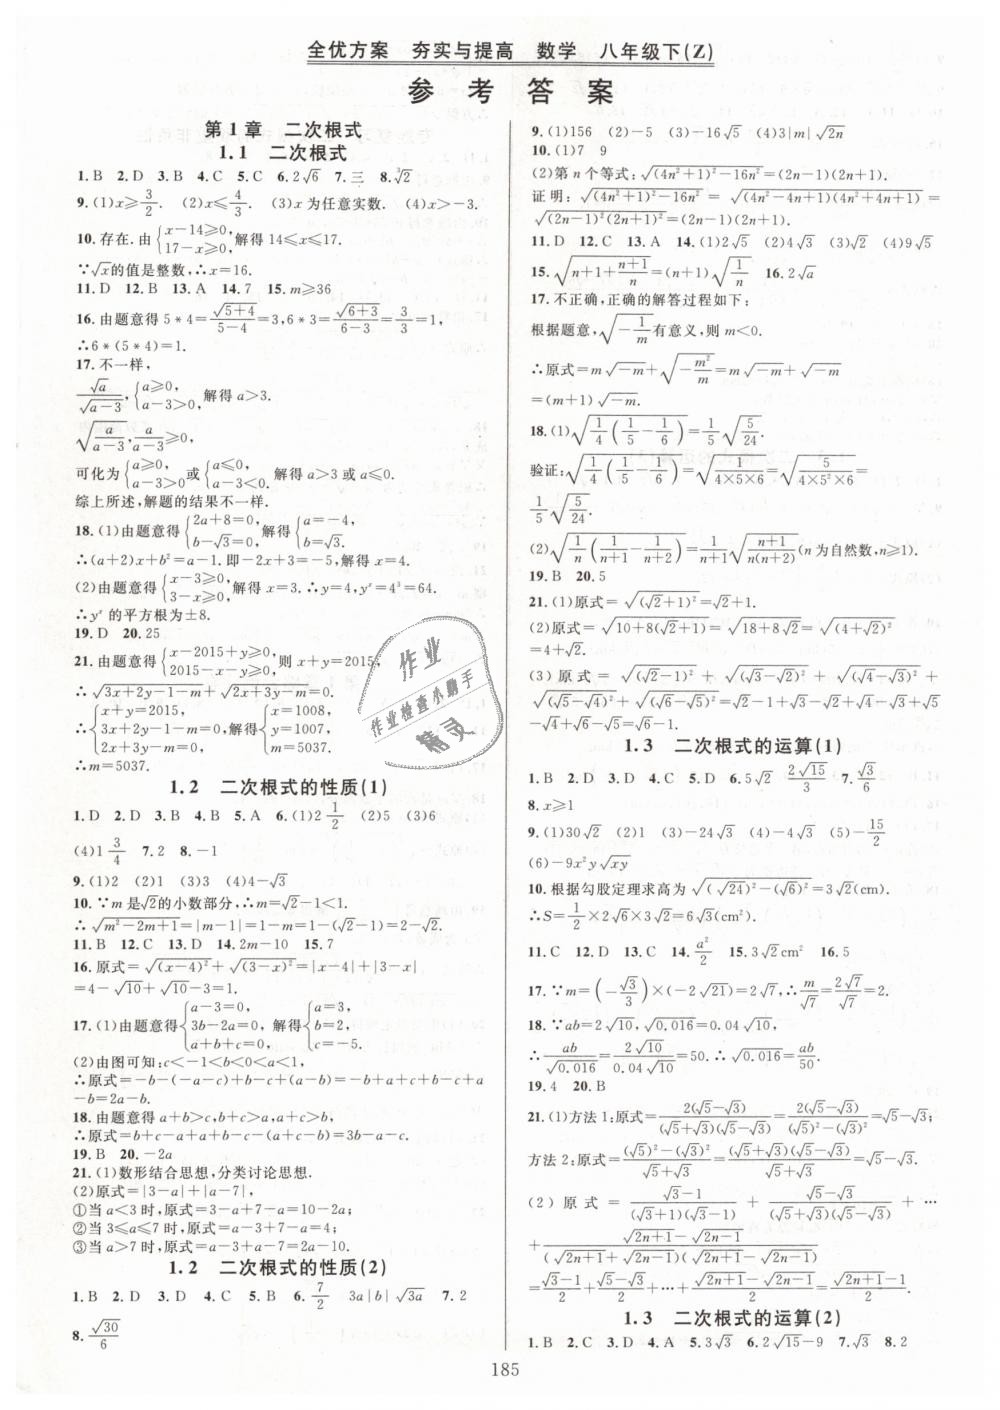 全优方案 夯实与提高 数学 八年级下(Z)
参考答案
第1章 二次根式
1.1 二次根式
1. B 2. D 3. B 4. C 5. C 6. 2√6 7. 三 8. ∛2
9. (1)x≥3/2. (2)x≤4/3. (3)x为任意实数. (4)x>-3.
10. 存在. 由{x-14≥0, 17-x≥0, 解得14≤x≤17.
∵√x的值是整数,∴x=16.
11. D 12. B 13. A 14. 7 15. m≥36
16. 由题意得5*4=√(5+4)/(5-4)=3,6*3=√(6+3)/(6-3)=3/3=1,
∴6*(5*4)=1.
17. 不一样,
√a/√(a-3),{a≥0, a-3>0, 解得a>3.
√(a/(a-3)),a/(a-3)≥0,
可化为{a≥0, a-3>0 或{a≤0, a-3<0. 解得a>3或a≤0.
综上所述,解题的结果不一样.
18. (1)由题意得{2a+8=0, b-√3=0, 解得{a=-4, b=√3.
∴(a+2)x+b²=a-1. 即-2x+3=-5,解得x=4.
(2)由题意得{x-3≥0, 3-x≥0, 解得x=3. ∴y=4,yˣ=4³=64.
∴yˣ的平方根为±8.
19. D 20. 25
21. 由题意得{x-2015+y≥0, 2015-x-y≥0, 则x+y=2015,
∴√(3x+2y-1-m)+√(2x+3y-m)=0.
∴{x+y=2015, 3x+2y-1-m=0, 2x+3y-m=0, 解得{x=1008, y=1007, m=5037.
∴m=5037.
1.2 二次根式的性质(1)
1. D 2. D 3. B 4. B 5. A 6. (1)2 1/2 (2)5 (3)6
(4)1 3/4 7. 2 8. -1
9. (1)2 (2)1 (3)3 (4)4-√3
10. ∵m是√2的小数部分,∴m=√2-1<1.
∴√(m²-2m+1)=|m-1|=1-m=1-(√2-1)=2-√2.
11. B 12. C 13. D 14. 2m-10 15. 7
16. 原式=√(x-4)²+√(3-x)²=|x-4|+|3-x|
=4-√10+√10-3=1.
17. (1)由题意得{a-3=0, 3b-2a=0, a+b+c=0, 解得{a=3, b=2, c=-5.
(2)由图可知:c<-1<b<0<a<1,
∴原式=-b-(-a-c)+b-c+(a-b)=-b+a+c+b-c+a
-b=2a-b.
18. 由题意得a+b>c,b+c>a,a+c>b,
∴原式=b+c-a+a+b-c-(a+c-b)=3b-a-c.
19. B 20. -2a
21. (1)数形结合思想,分类讨论思想.
(2)原式=|3-a|+|a-7|,
①当a<3时,原式=3-a+7-a=10-2a;
②当3≤a≤7时,原式=a-3+7-a=4;
③当a>7时,原式=a-3+a-7=2a-10.
1.2 二次根式的性质(2)
1. B 2. D 3. D 4. C 5. B 6. 7/2 3a|b|√(3a) 7. 2
8. √30/6
9. (1)156 (2)-5 (3)-16√5 (4)3|m|√(2n)
10. (1)7 9
(2)第n个等式:√((4n²+1)²-16n²)=(2n-1)(2n+1).
证明:√((4n²+1)²-16n²)=√((4n²-4n+1)(4n²+4n+1))=
√((2n-1)²(2n+1)²)=(2n-1)(2n+1).
11. D 12. C 13. A 14. (1)2√5 (2)4√3 (3)√2 (4)9√5
15. √(n+1+(n+1)/n)=(n+1)√(1/n) 16. 2√a
17. 不正确,正确的解答过程如下:
根据题意,√(-1/m)有意义,则m<0.
∴原式=m√(-m)+√(-m²/m)=m√(-m)+√(-m)
=(m+1)√(-m).
18. (1)√(1/4(1/5-1/6))=1/5√(5/24).
验证:√(1/4(1/5-1/6))=√(1/(4×5×6))=√(5/(4×5²×6))=
1/5√(5/24).
(2)√(1/n(1/(n+1)-1/(n+2)))=1/(n+1)√((n+1)/(n(n+2)))(n为自然数,n≥1).
19. B 20. 5
21. (1)原式=√((√2+1)²)=√2+1.
(2)原式=√(10+8(√2+1))=√(18+8√2)=√((4+√2)²)
=4+√2.
(3)原式=√((√2-1)²)+√((√3-√2)²)+√((√4-√3)²)+
√((√5-√4)²)+√((√6-√5)²)=√2-1+√3-√2+√4-√3+√5
-√4+√6-√5=√6-1.
1.3 二次根式的运算(1)
1. B 2. D 3. D 4. C 5. D 6. 5√2 2√15/3 7. √3/6
8. x≥1
9. (1)30√2 (2)1 (3)-24√3 (4)-4√3 (5)-15/2
(6)-9x²y√(xy)
10. 根据勾股定理求高为√((√24)²-(√6)²)=3√2(cm).
∴S=1/2×2√6×3√2=6√3(cm²).
11. C 12. D 13. C 14. a²/2 15. 3√2cm² 16. 5
17. ∵m=(-√3/3)×(-2√21)=2√7,∴m/√7=2√7/√7=2.
18. ∵ab=2√10,√0.016=0.04√10,
∴ab/√0.016=2√10/0.04√10=50. ∴√0.016=ab/50.
19. 4 20. B
21. (1)方法1:原式=2(√5-√3)/((√5+√3)(√5-√3))=2(√5-√3)/((√5)²-(√3)²)=√5-√3;
方法2:原式=((√5)²-(√3)²)/(√5+√3)=(√5+√3)(√5-√3)/(√5+√3)=√5-√3.
(2)原式=(√3-1)/((√3+1)(√3-1))+(√5-√3)/((√5+√3)(√5-√3))+…
+(√(2n+1)-√(2n-1))/((√(2n+1)+√(2n-1))(√(2n+1)-√(2n-1)))
=(√3-1)/2+(√5-√3)/2+…+(√(2n+1)-√(2n-1))/2=(√(2n+1)-1)/2.
1.3 二次根式的运算(2)
1. B 2. C 3. D 4. A 5. 3√3 6. 2√15-9 7. √3 8. 2
185
作业
作业检查小助手
精灵